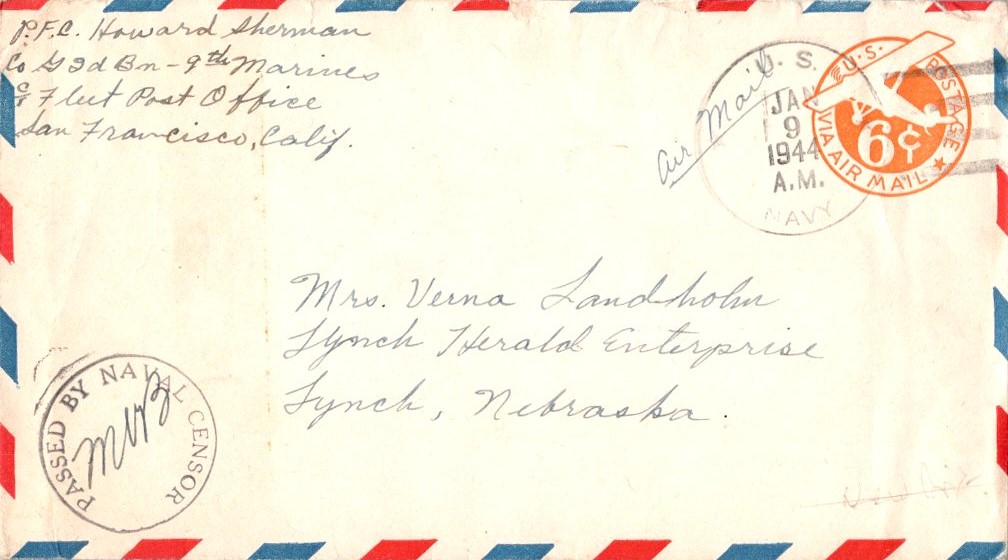 P.F.C. Howard Sherman
Co G 2d Bn - 9th Marines
℅ Fleet Post Office
San Francisco, Calif.
Air Mail
U. S.
JAN
9
1944
A.M.
NAVY
U.S. POSTAGE
6¢
VIA AIR MAIL
Mrs. Verna Landholm
Lynch Herald Enterprise
Lynch, Nebraska.
PASSED BY NAVAL CENSOR
MWB